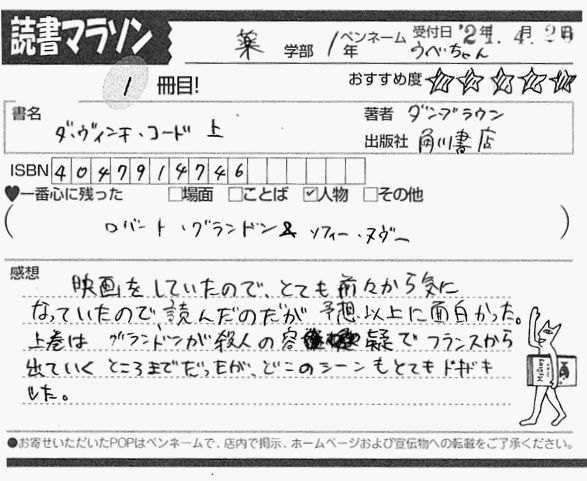 読書マラソン
薬 学部 1年 ペンネーム うべちゃん 受付日 '21. 4. 28
1 冊目! おすすめ度 ☆☆☆☆☆
書名 ダ・ヴィンチ・コード 上
著者 ダン・ブラウン
出版社 角川書店
ISBN 4047914746
♥一番心に残った □場面 □ことば ☑人物 □その他
( ロバート・グランドン & ソフィー・ヌヴー )
感想
映画をしていたので、とても前々から気に
なっていたので、読んだのだが予想以上に面白かった。
上巻は グランドンが殺人の容疑でフランスから
出ていくところまでだったが、どこのシーンもとてもドキドキ
した。
●お寄せいただいたPOPはペンネームで、店内で掲示、ホームページおよび宣伝物への転載をご了承ください。